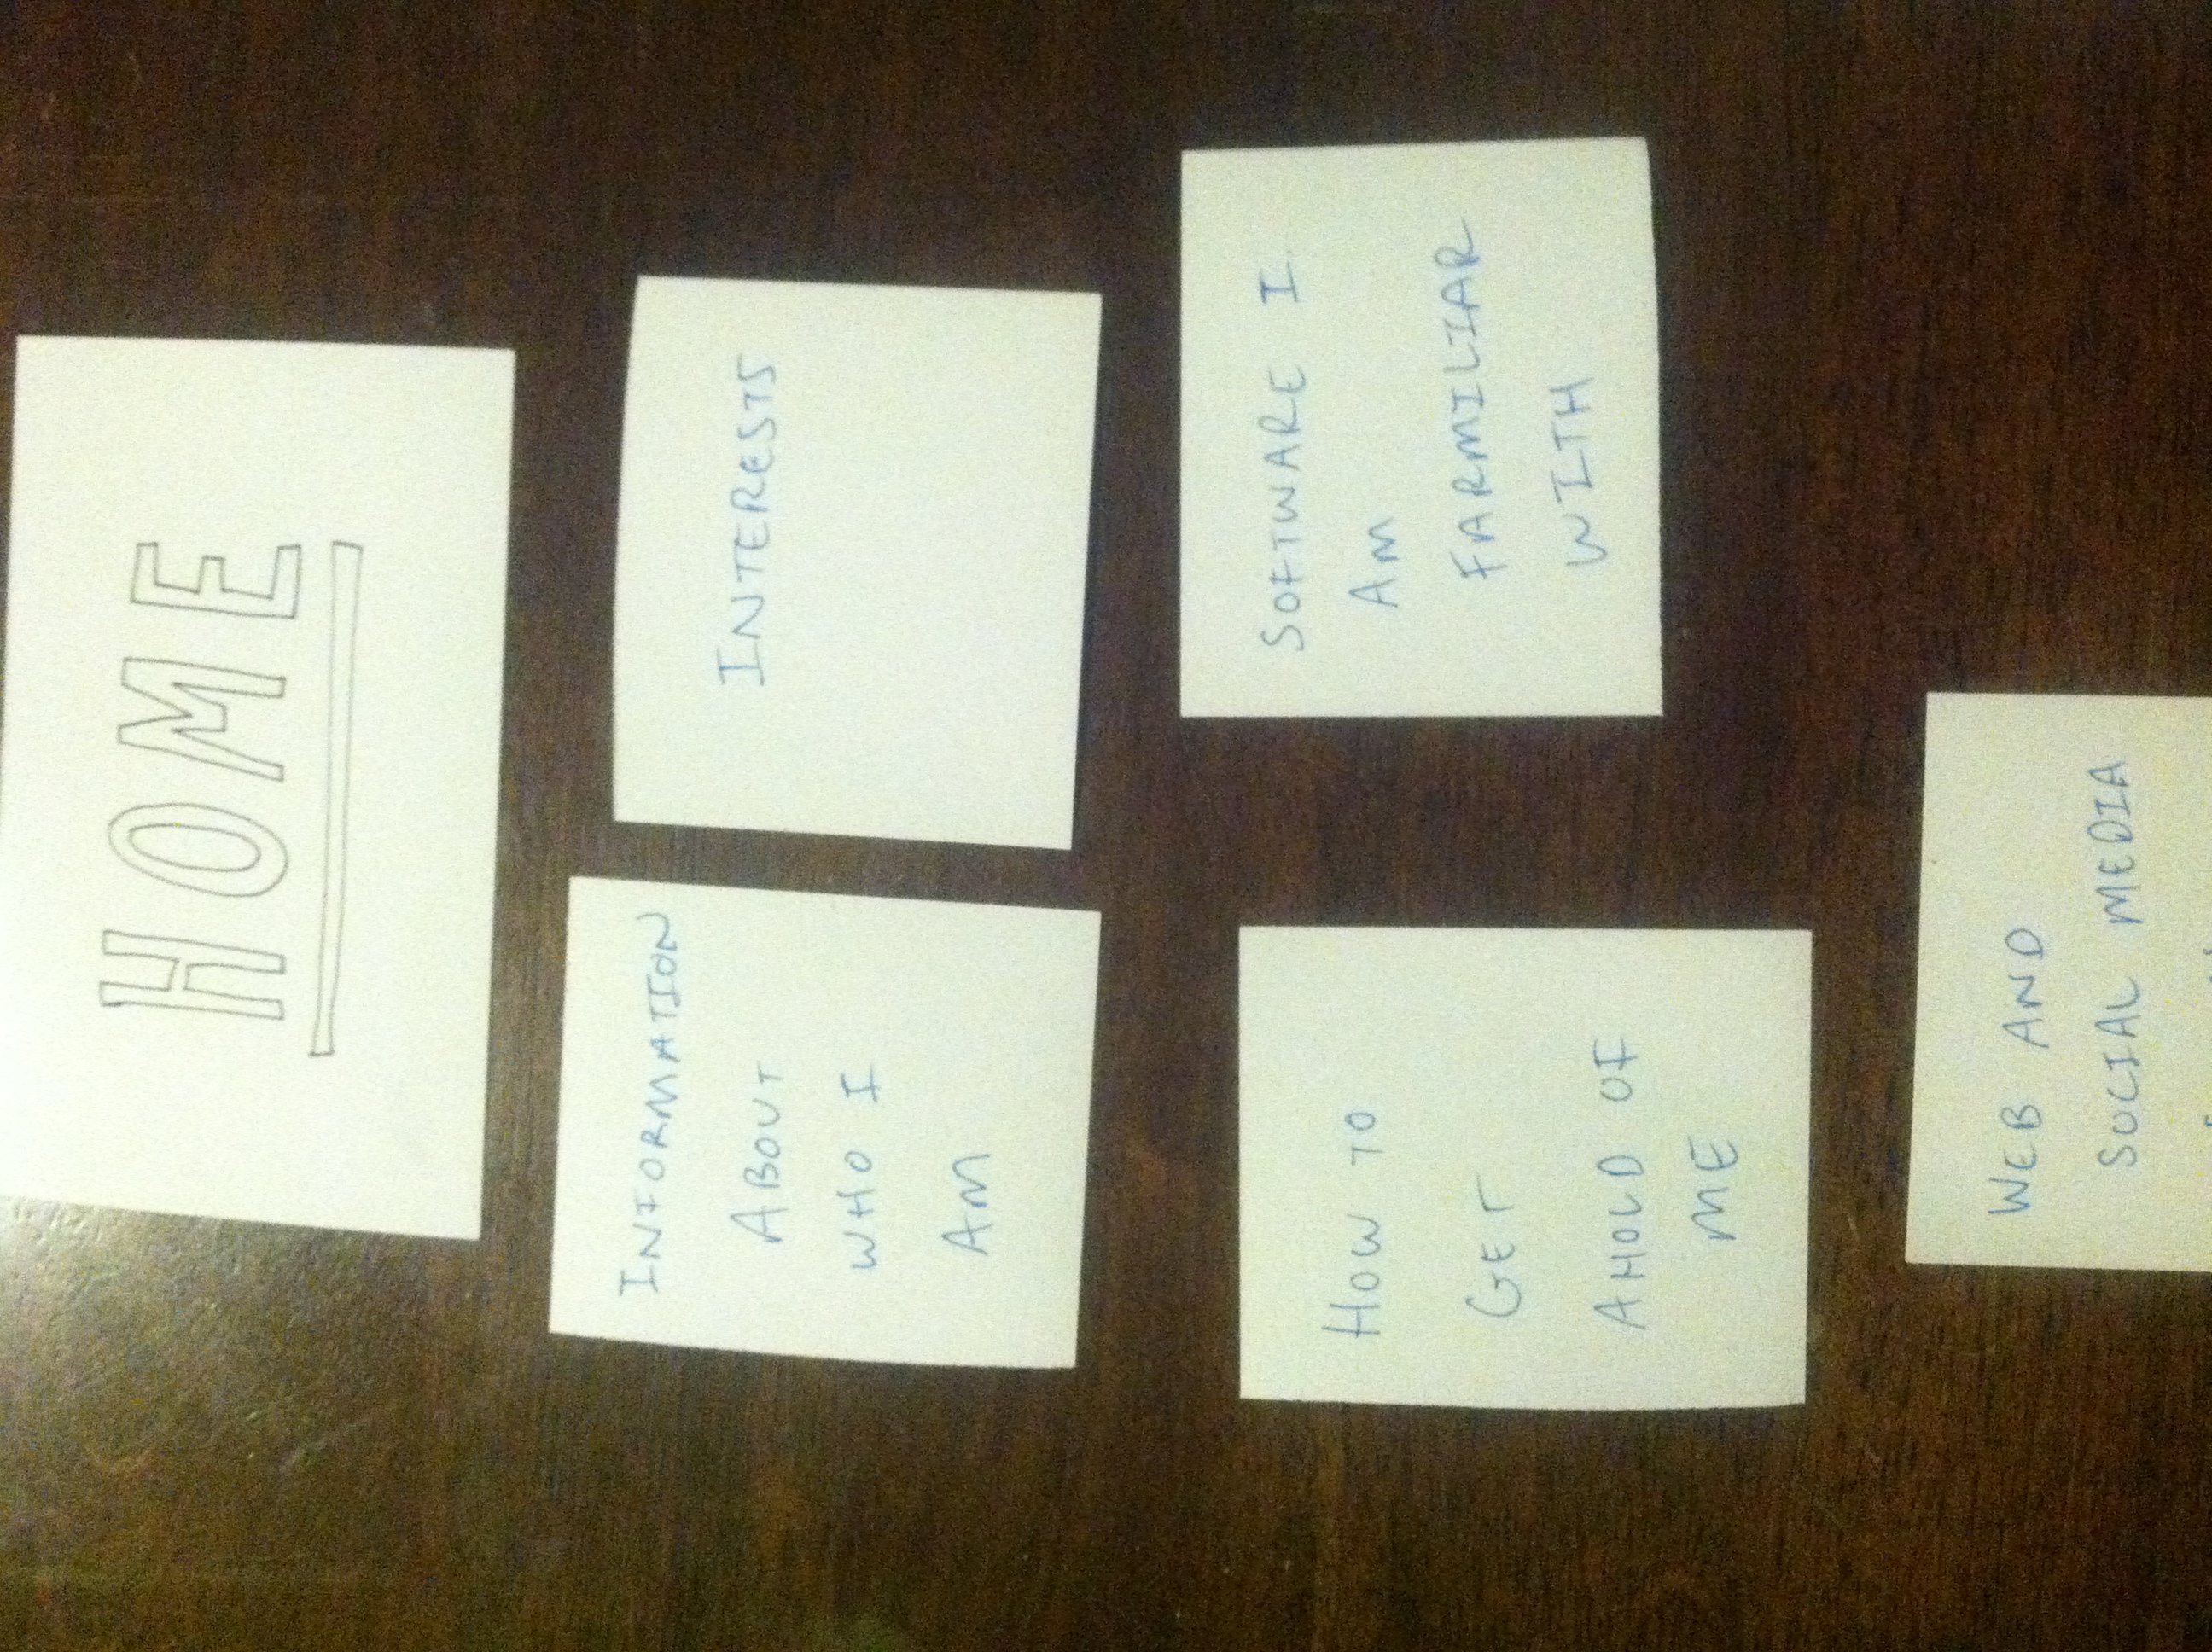 HOME
INFORMATION
ABOUT
WHO I
AM
INTERESTS
HOW TO
GET
AHOLD OF
ME
SOFTWARE I
AM
FARMILIAR
WITH
WEB AND
SOCIAL MEDIA